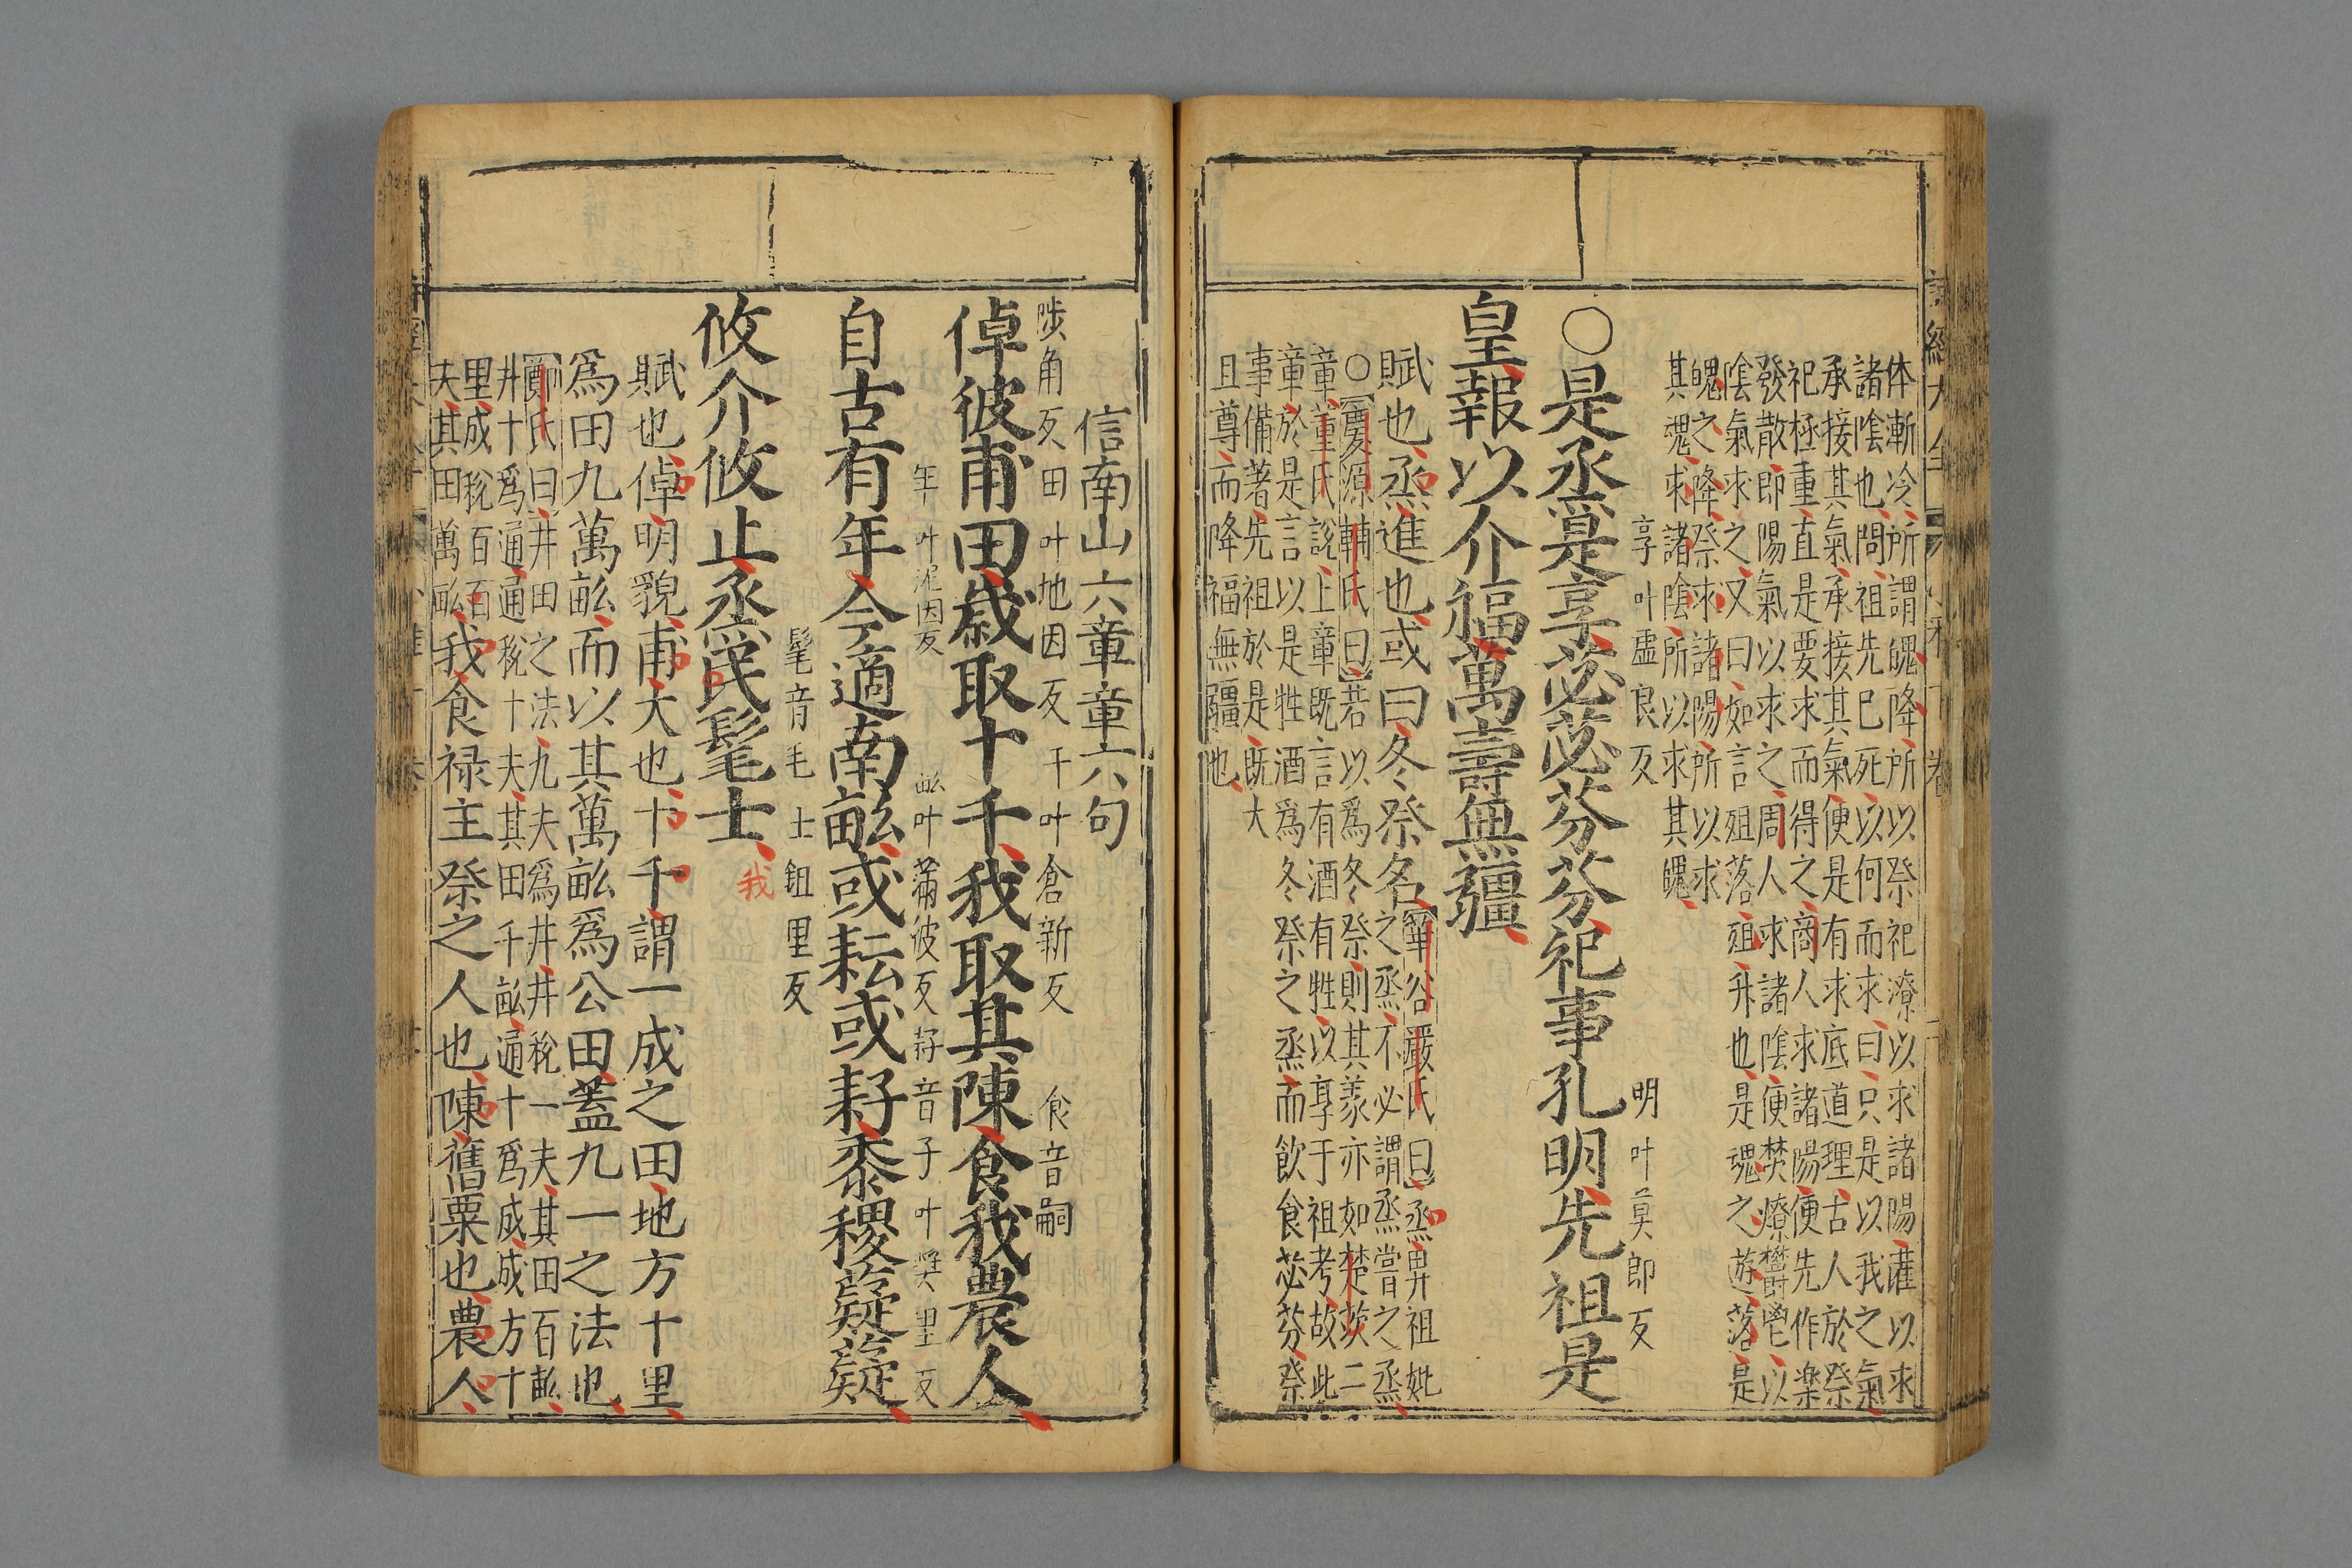 体漸冷所謂魄降所以祭祀潦以求諸陽灌以求
諸陰也問祖先已死以何而求曰只是以我之氣
承接其氣承接其氣便是有求底道理古人於祭
祀極重直是要求而得之商人求諸陽便先作樂
發散即陽氣以求之周人求諸陰便焚燎鬱鬯以
陰氣求之又曰如言殂落殂升也是魂之遊落是
魄之降祭求諸陽所以求
其魂求諸陰所以求其魄
享叶虛良反 明叶莫郎反
○是烝是享苾苾芬芬祀事孔明先祖是
皇報以介福萬壽無疆
賦也烝進也或曰冬祭名
華谷嚴氏曰烝畀祖妣
之烝不必謂烝嘗之烝
○慶源輔氏曰若以爲冬祭則其義亦如楚茨二
章董氏說上章既言有酒有牲以享于祖考故此
章於是言以是牲酒爲冬祭之烝而飲食苾芬祭
事備著先祖於是既大
且尊而降福無疆也
信南山六章章六句
陟角反 田叶地因反 千叶倉新反 食音嗣
倬彼甫田歲取十千我取其陳食我農人
年叶泥因反 畝叶滿彼反 耔音子叶奬里反
自古有年今適南畝或耘或耔黍稷薿薿
髦音毛 士鉏里反
攸介攸止烝民髦士
我
賦也倬明貌甫大也十千謂一成之田地方十里
爲田九萬畝而以其萬畝爲公田蓋九一之法也
鄭氏曰井田之法九夫爲井井稅一夫其田百畝
井十爲通通稅十夫其田千畝通十爲成成方十
里成稅百
夫其田萬畝
我食禄主祭之人也陳舊粟也農人